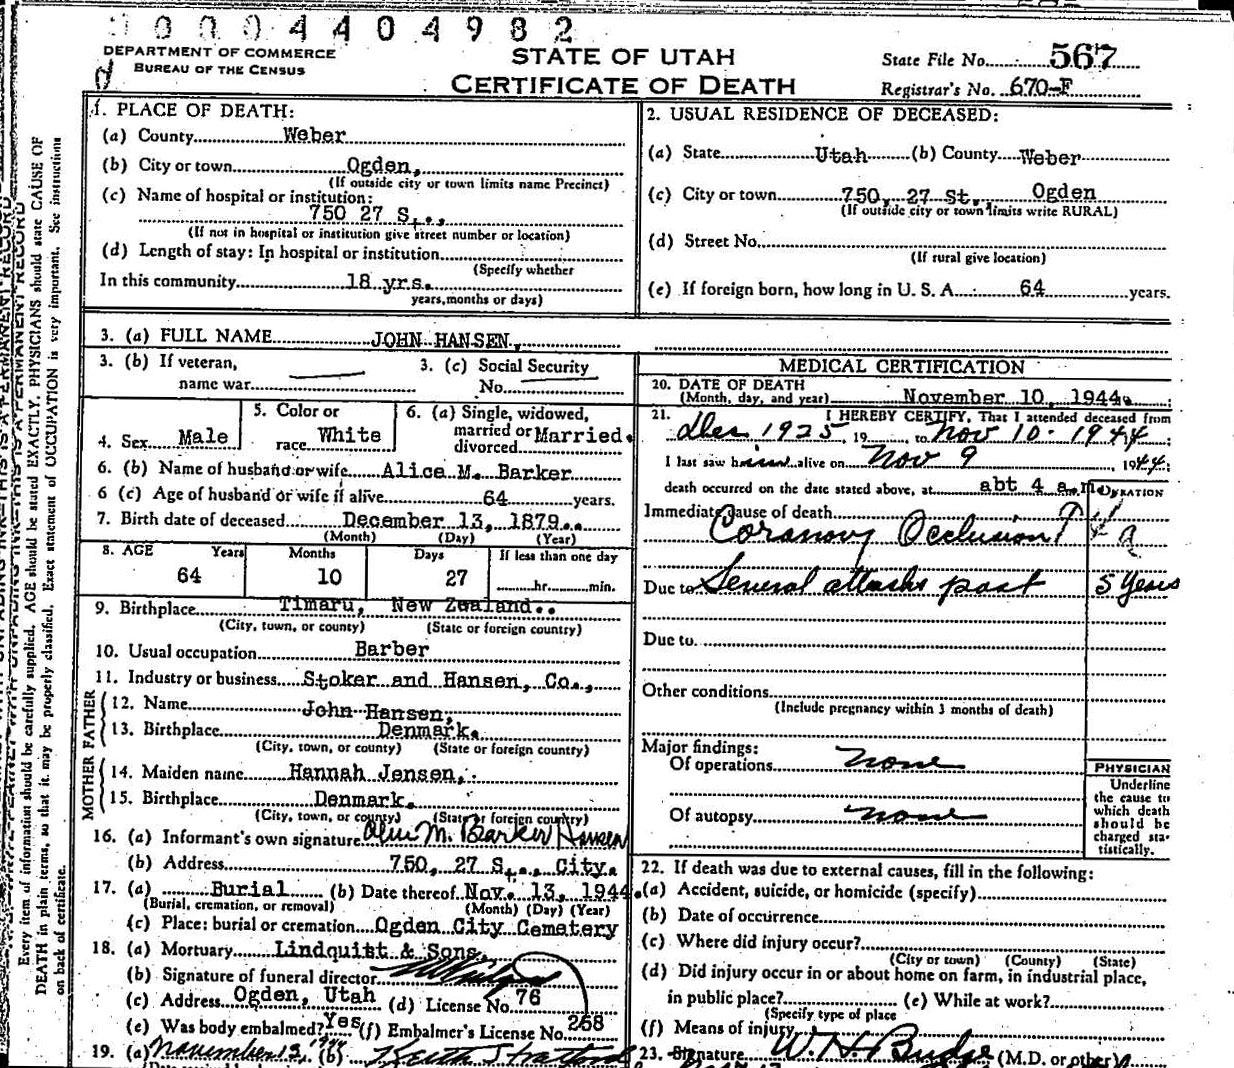 0004404982
DEPARTMENT OF COMMERCE
BUREAU OF THE CENSUS
STATE OF UTAH
CERTIFICATE OF DEATH
State File No. 567
Registrar's No. 670-F
Every item of information should be carefully supplied. AGE should be stated EXACTLY. PHYSICIANS should state CAUSE OF
DEATH in plain terms, so that it may be properly classified. Exact statement of OCCUPATION is very important. See instructions
on back of certificate.
1. PLACE OF DEATH:
(a) County Weber
(b) City or town Ogden,
(If outside city or town limits name Precinct)
(c) Name of hospital or institution:
750 27 S.,,
(If not in hospital or institution give street number or location)
(d) Length of stay: In hospital or institution
(Specify whether
In this community 18 yrs.
years, months or days)
2. USUAL RESIDENCE OF DECEASED:
(a) State Utah (b) County Weber
(c) City or town 750, 27 St., Ogden
(If outside city or town limits write RURAL)
(d) Street No.
(If rural give location)
(e) If foreign born, how long in U. S. A. 64 years.
3. (a) FULL NAME JOHN HANSEN,
3. (b) If veteran, name war
3. (c) Social Security No.
4. Sex Male
5. Color or race White
6. (a) Single, widowed, married or divorced Married.
6. (b) Name of husband or wife Alice M. Barker
6 (c) Age of husband or wife if alive 64 years.
7. Birth date of deceased December 13, 1879..
(Month) (Day) (Year)
8. AGE Years Months Days If less than one day
64 10 27 hr. min.
9. Birthplace Timaru, New Zealand..
(City, town, or county) (State or foreign country)
10. Usual occupation Barber
11. Industry or business Stoker and Hansen, Co.,
FATHER
12. Name John Hansen,
13. Birthplace Denmark.
(City, town, or county) (State or foreign country)
MOTHER
14. Maiden name Hannah Jensen,
15. Birthplace Denmark.
(City, town, or county) (State or foreign country)
16. (a) Informant's own signature M. Barker Hansen
(b) Address 750, 27 S.,. City.
17. (a) Burial (b) Date thereof Nov. 13, 1944.
(Burial, cremation, or removal) (Month) (Day) (Year)
(c) Place: burial or cremation Ogden City Cematery
18. (a) Mortuary Lindquist & Sons.
(b) Signature of funeral director
(c) Address Ogden, Utah (d) License No. 76
(e) Was body embalmed? Yes (f) Embalmer's License No. 268
19. (a) November 13, 1944 (b) Keith Stratford
MEDICAL CERTIFICATION
20. DATE OF DEATH
(Month, day, and year) November 10, 1944.
21. I HEREBY CERTIFY, That I attended deceased from
Dec 1925, 19 to Nov 10-1944;
I last saw him alive on Nov 9, 1944;
death occurred on the date stated above, at abt 4 a.m.
DURATION
Immediate cause of death
Coronary Occlusion
Due to Several attacks past 5 years
Due to
Other conditions
(Include pregnancy within 3 months of death)
Major findings:
Of operations none
Of autopsy none
PHYSICIAN
Underline
the cause to
which death
should be
charged sta-
tistically.
22. If death was due to external causes, fill in the following:
(a) Accident, suicide, or homicide (specify)
(b) Date of occurrence
(c) Where did injury occur?
(City or town) (County) (State)
(d) Did injury occur in or about home on farm, in industrial place,
in public place? (e) While at work?
(Specify type of place
(f) Means of injury
23. Signature W. H. Budge (M.D. or other)